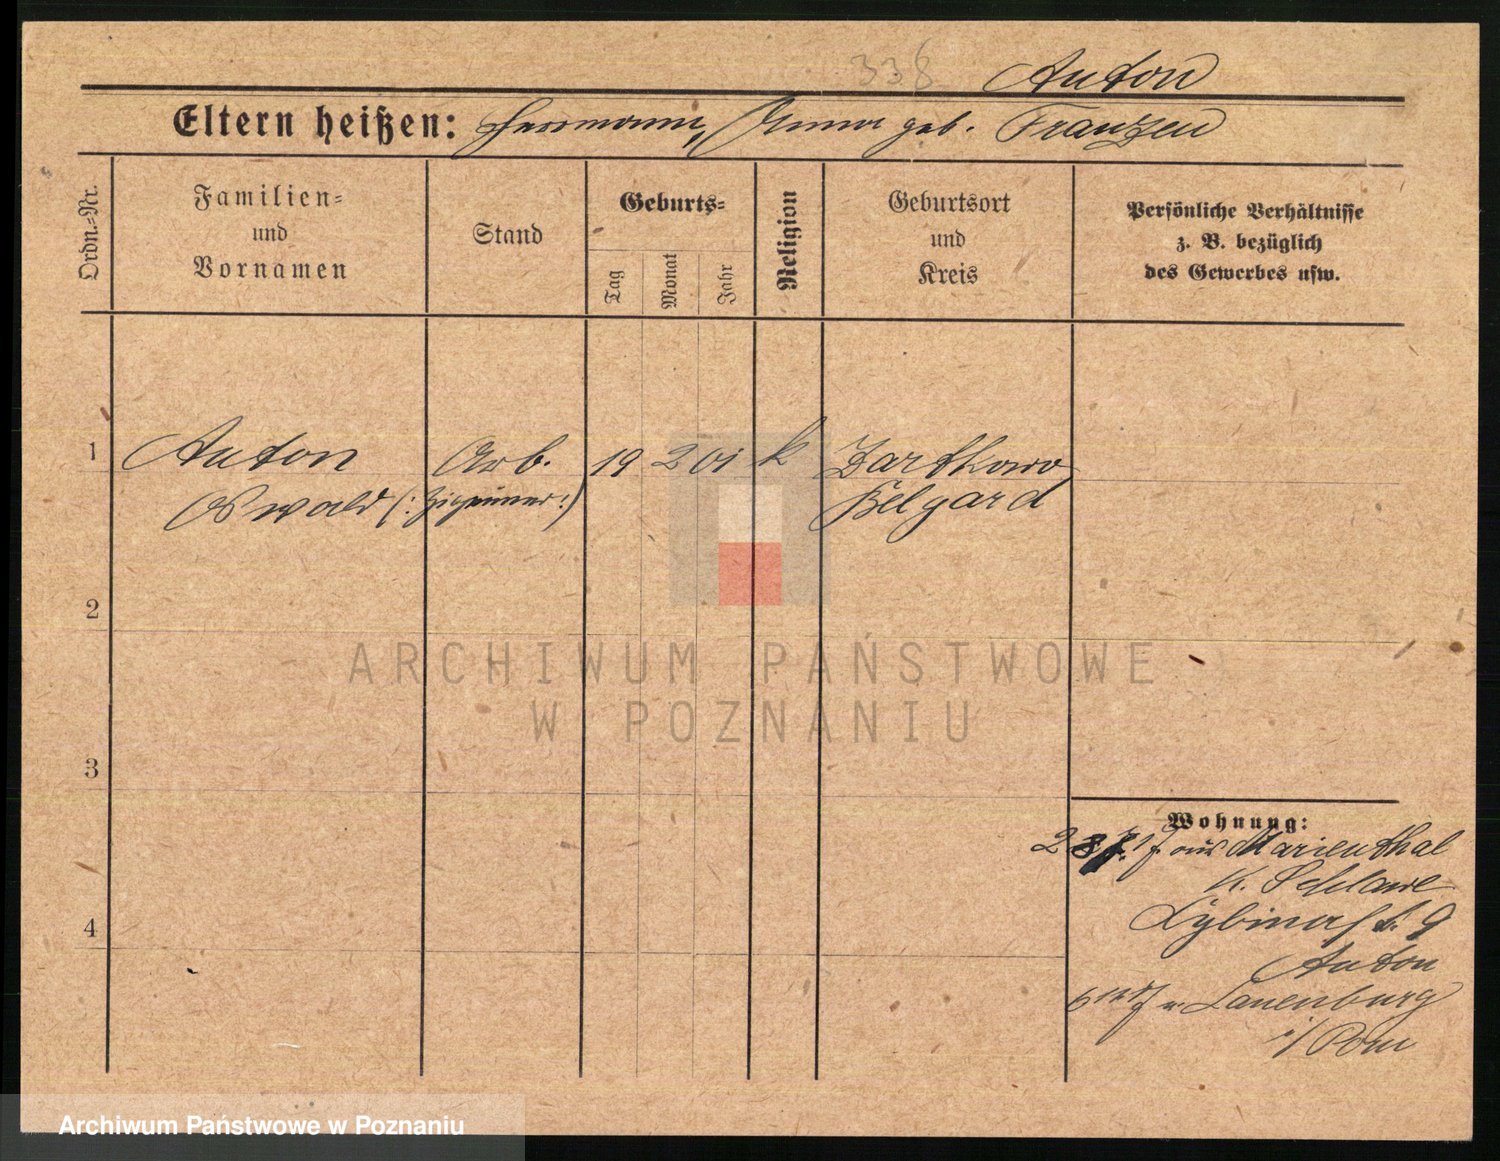 338 Anton
Eltern heißen: Herrmann, Anna geb. Franzen
Ordn.-Nr.
Familien-
und
Vornamen
Stand
Geburts-
Tag
Monat
Jahr
Religion
Geburtsort
und
Kreis
Persönliche Verhältnisse
z. B. bezüglich
des Gewerbes usw.
1 Anton Arb. 19 2 01 k Zartkowo
Oswald (: Zigeuner :) Belgard
2
3
4
ARCHIWUM PAŃSTWOWE
W POZNANIU
Wohnung:
aus Marienthal
K. Schlawe
9
Anton
n. Lauenburg
i/Pom
Archiwum Państwowe w Poznaniu